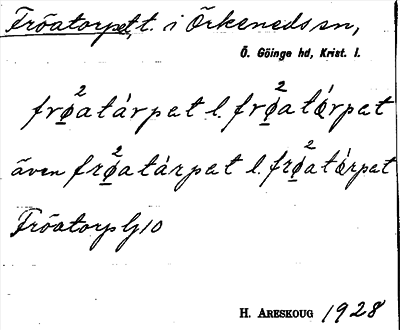 Fröatorpet, t. i Örkeneds sn,
Ö. Göinge hd, Krist. l.
frø̲²atárpet l. frø̲²atǿrpet
även frø̲²atárpet l. frø̲²atǿrpet
Fröatorp G 10
H. ARESKOUG 1928